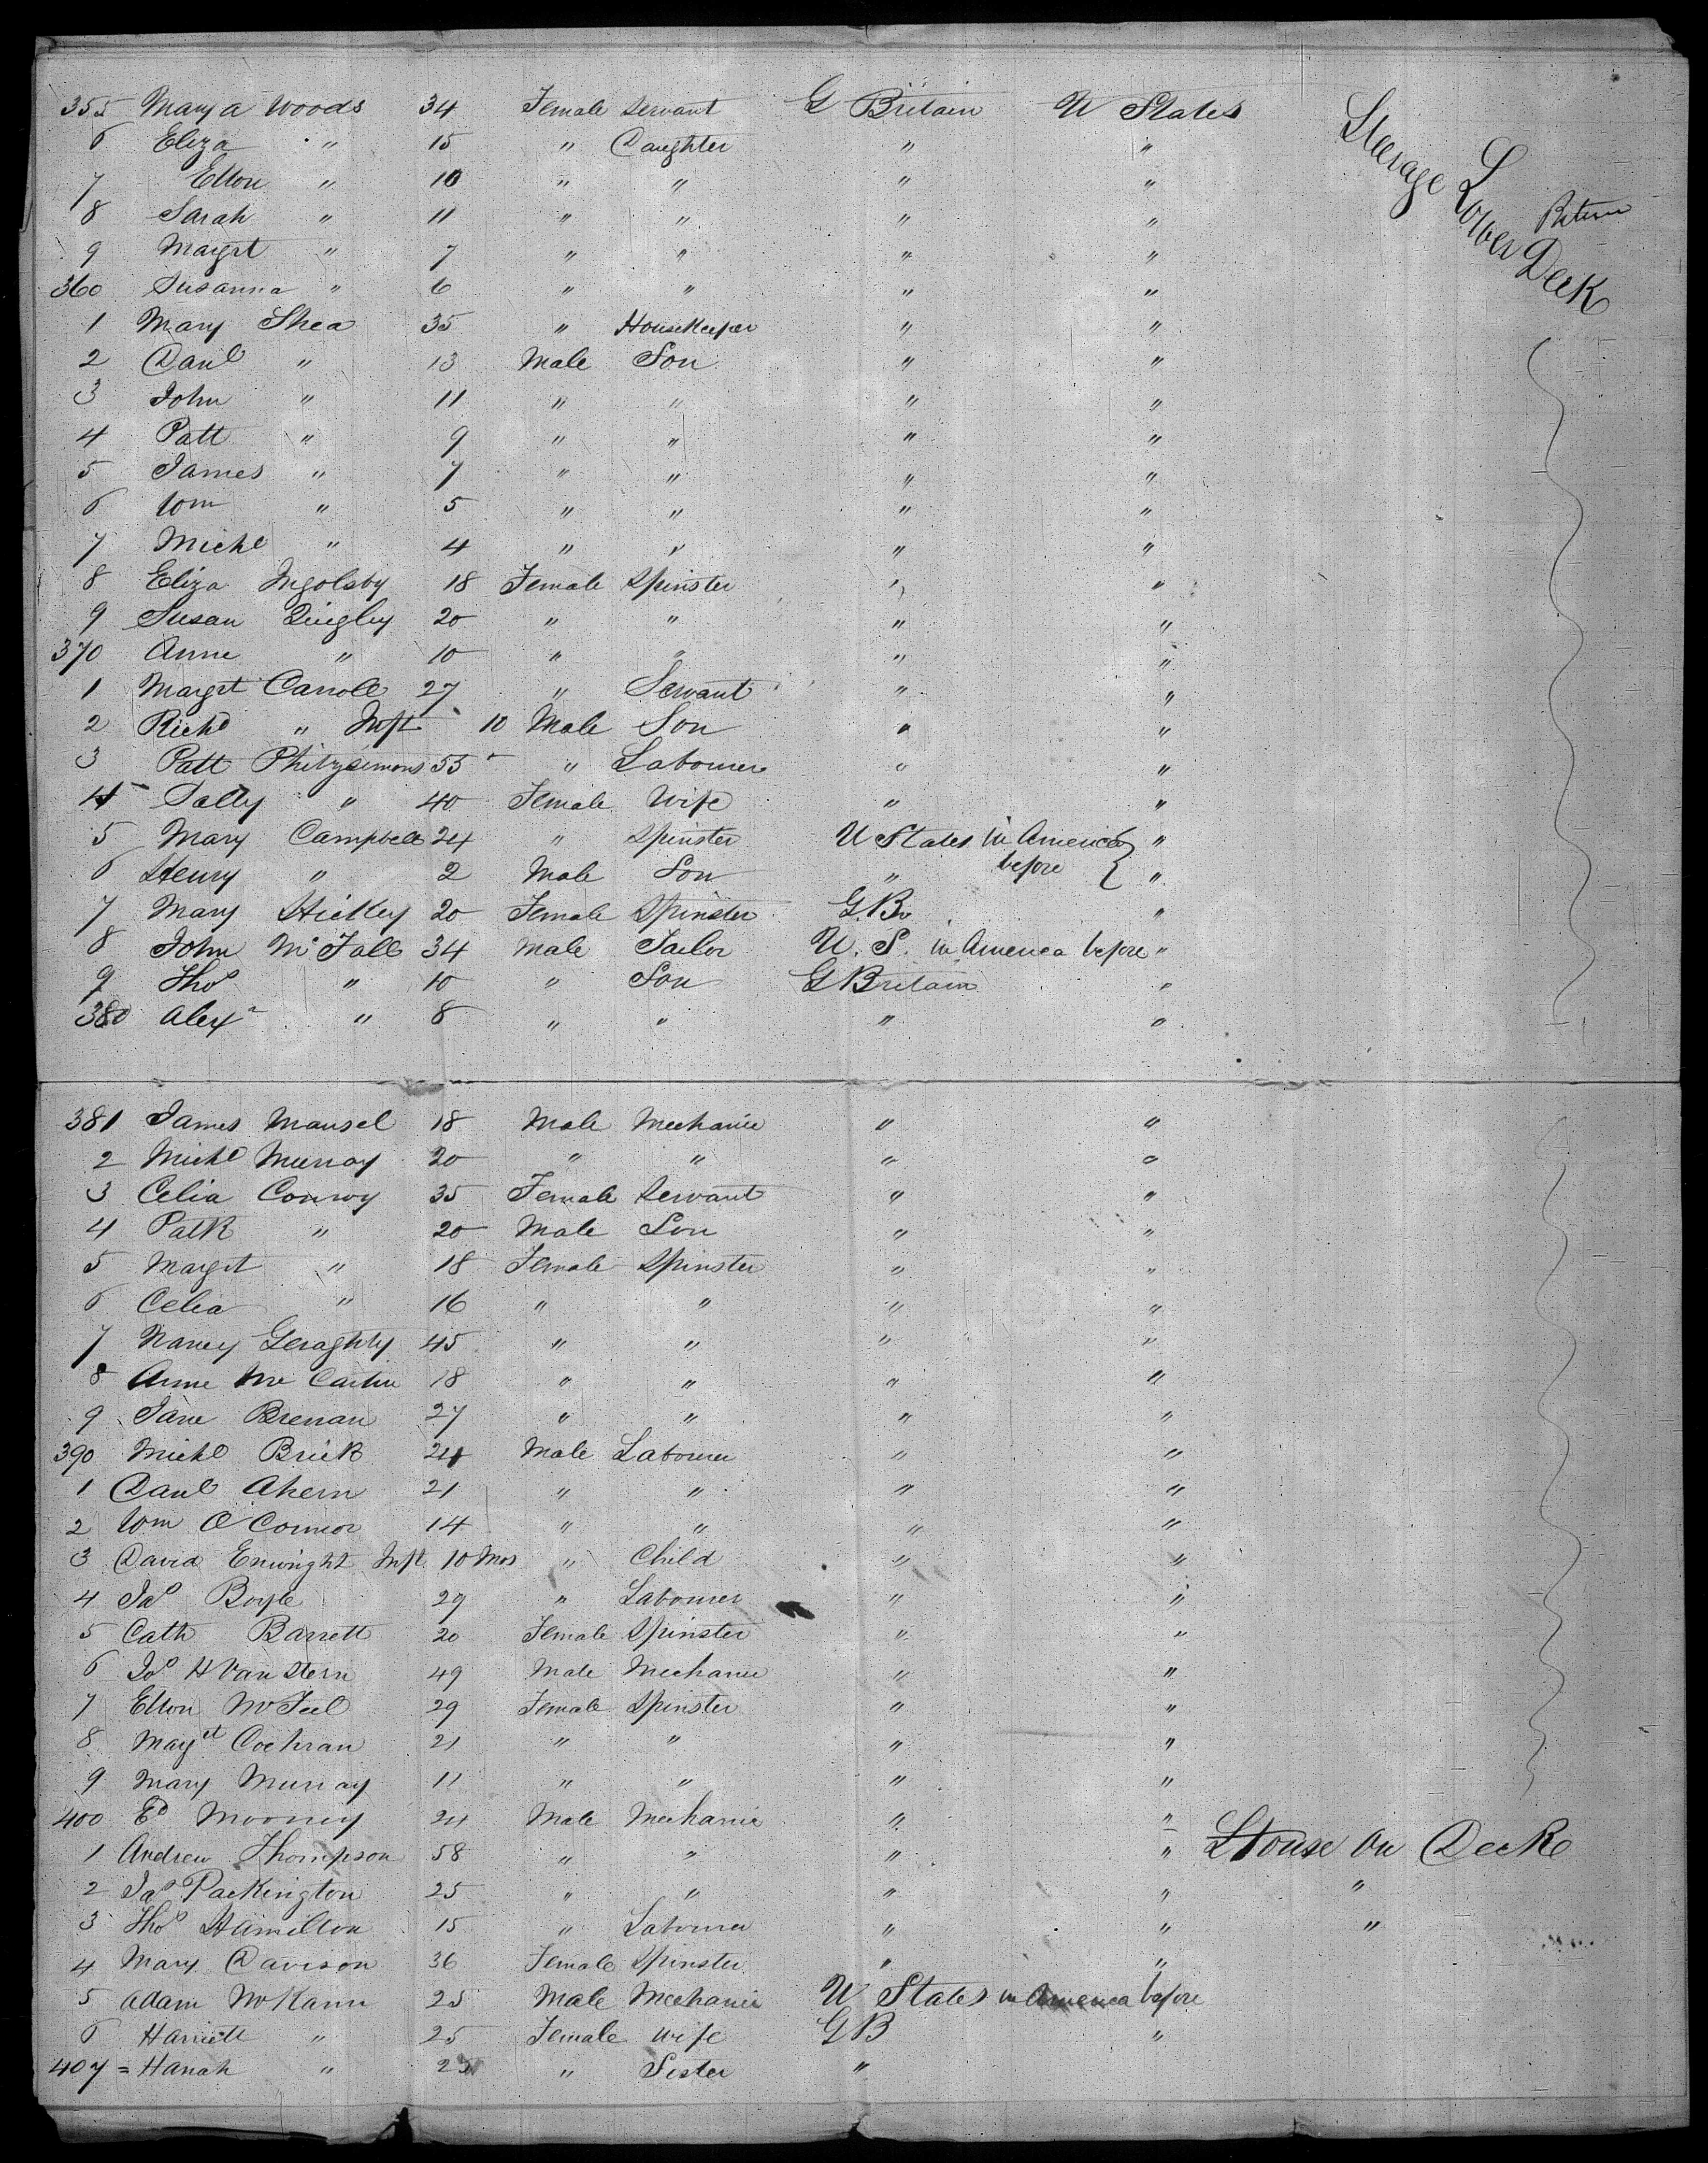 355 Mary A Woods 34 Female Servant G Britain U States
6 Eliza " 15 " Daughter " "
7 Ellen " 10 " " " "
8 Sarah " 11 " " " "
9 Margt " 7 " " " "
360 Susanna " 6 " " " "
Steerage Lower Deck
1 Mary Shea 35 " Housekeeper " "
2 Danl " 13 Male Son " "
3 John " 11 " " " "
4 Patt " 9 " " " "
5 James " 7 " " " "
6 Wm " 5 " " " "
7 Michl " 4 " " " "
8 Eliza Ingolsby 18 Female Spinster " "
9 Susan Quigley 20 " " " "
370 Anne " 10 " " " "
1 Margt Carroll 27 " Servant " "
2 Richd " Inft 10 Male Son " "
3 Patt Phitzsimons 55 " Labourer " "
4 Sally " 40 Female Wife " "
5 Mary Campbell 24 " Spinster U States in America before "
6 Henry " 2 Male Son " "
7 Mary Hickey 20 Female Spinster G.B. "
8 John McFall 34 Male Tailor U. S. in America before "
9 Thos " 10 " Son G Britain "
380 Alexr " 8 " " " "
381 James Mansel 18 Male Mechanic " "
2 Michl Murray 20 " " " "
3 Celia Conroy 35 Female Servant " "
4 Patk " 20 Male Son " "
5 Margt " 18 Female Spinster " "
6 Celia " 16 " " " "
7 Nancy Geraghty 45 " " " "
8 Anne Mc 18 " " " "
9 Jane Brenan 27 " " " "
390 Michl Brick 24 Male Labourer " "
1 Danl Ahern 21 " " " "
2 Wm O'Connor 14 " " " "
3 David Enwright Inft 10 Mos " Child " "
4 Jas Boyle 29 " Labourer " "
5 Cath Barrett 20 Female Spinster " "
6 Jos H Van Stern 49 Male Mechanic " "
7 Ellen McFeel 29 Female Spinster " "
8 Magt Cochran 21 " " " "
9 Mary Murray 11 " " " "
400 Ed Mooney 24 Male Mechanic " "
1 Andrew Thompson 58 " " " " House on Deck
2 Jas Packington 25 " " " " "
3 Thos Hamilton 15 " Labourer " " "
4 Mary Davison 36 Female Spinster " "
5 Adam McKann 25 Male Mechanic U States in America before
6 Harriett " 25 Female Wife GB "
407 = Hanah " 25 " Sister "